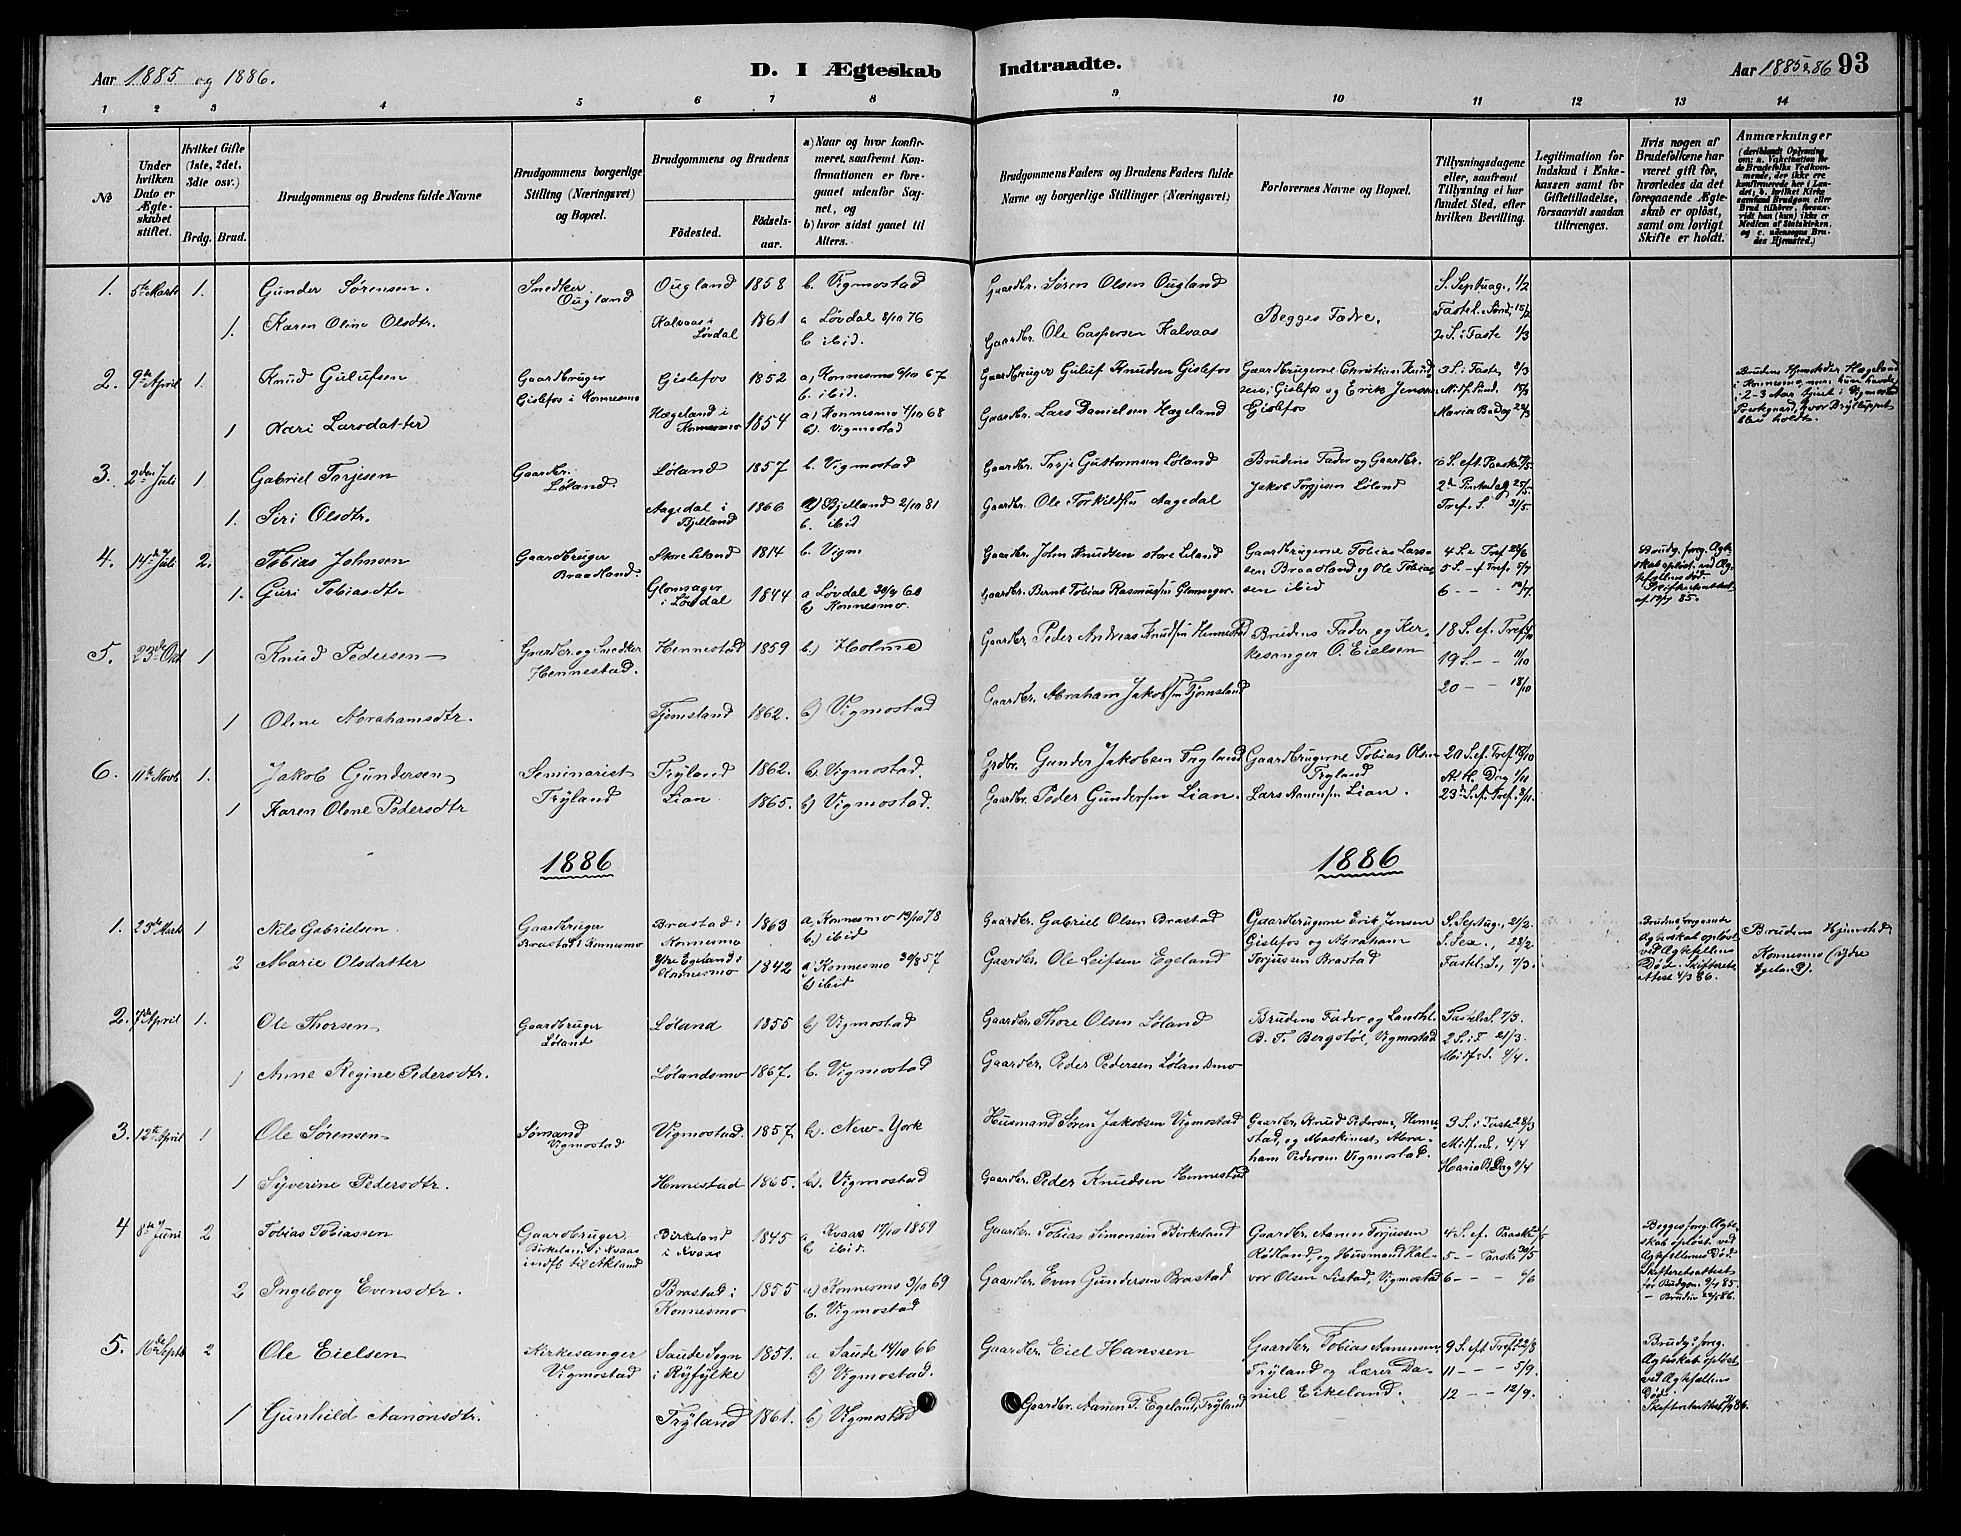 Aar 1885 og 1886.
D. I Ægteskab Indtraadte.
Aar 1885 & 86 93
1 2 3 4 5 6 7 8 9 10 11 12 13 14
No
Under hvilken Dato er Ægteskabet stiftet.
Hvilket Gifte (1ste, 2det, 3dte osv.)
Brdg. Brud.
Brudgommens og Brudens fulde Navne
Brudgommens borgerlige Stilling (Næringsvei) og Bopæl.
Brudgommens og Brudens
Födested.
Födsels-aar.
a) Naar og hvor konfirmeret, saafremt Konfirmationen er foregaaet udenfor Sognet, og
b) hvor sidst gaaet til Alters.
Brudgommens Faders og Brudens Faders fulde Navne og borgerlige Stillinger (Næringsvei)
Forlovernes Navne og Bopæl.
Tillysningsdagene eller, saafremt Tillysning ei har fundet Sted, efter hvilken Bevilling.
Legitimation for Indskud i Enkekassen samt for Giftetilladelse, forsaavidt saadan tiltrænges.
Hvis nogen af Brudefolkene har været gift før, hvorledes da det foregaaende Ægteskab er oplöst, samt om lovligt Skifte er holdt.
Anmærkninger
1. 5te Marts 1. Gunder Sörensen. Snedker Ougland Ougland 1858 b. Vigmostad Gaardbr. Sören Olsen Ougland Begges Fædre. S. Septuag., 1/2
1. Karen Oline Olsdtr. Kalvaas i Lövdal 1861 a Lövdal 8/10 76 b ibid. Gaardbr. Ole Caspersen Kalvaas Fastel. Sönd. 15/2
2 S. i Faste 1/3
2. 9de April 1. Knud Gulufsen Gaardbruger Gislefos i Konnesmo Gislefos 1852 a) Konnesmo 6/10 67 b. ibid. Gaardbruger Guluf Knudsen Gislefos Gaardbrugerne Christian Knudsen, Gislefos og Erik Jensen Gislefos 3 S. i Faste 8/3
Midf. Sönd. 15/3
1 Kari Larsdatter Hægeland i Konnesmo 1854 a) Konnesmo 4/10 68 b). Vigmostad Gaardbr. Lars Danielsen Hægeland Maria Bud
Brudens Hjemsted er Hægeland i Konnesmo, men hun havde i 2-3 Aar tjent i Vigmostad Præstegaard, hvor Brylluppet blev holdt.
3. 2den Juli 1 Gabriel Torjesen Gaardbr. Löland Löland 1857 b. Vigmostad Gaardbr. Torje Guttormsen Löland Brudens Fader og Gaardbr. Jakob Torgjesen Löland 6 S. eft. Paaske
2den Pintsedag 25/5
1. Siri Olsdtr. Aagedal i Bjelland 1866 a) Bjelland 2/10 81 b. ibid Gaardbr. Ole Torkildsen Aagedal Tref. S. 31/5
4. 14de Juli 2. Tobias Johnsen Gaardbruger Braadland. Store Leland 1814 b. Vigm Gaardbr. John Knudsen store Leland Gaardbrugerne Tobias Larssen Braadland og Ole Tobiassen ibid 4 S. e Tref 28/6
5 S. - ef Tref. 5/7
1. Guri Tobiasdtr. Glomsager i Lövdal 1844 a Lövdal 30/9 60 b Konnesmo. Gaardbr. Bernt Tobias Rasmussen Glomsager. 6 - - -
Brudg. foreg. Ægteskab oplöst ved Ægtefællens död.
5. 23de Okt 1 Knud Pedersen Gaardbr. og Snedker Hennestad. Hennestad 1859 b) Holme Gaardbr. Peder Andreas Knudsen Hennestad Brudens Fader og Kirkesanger O. Eielsen 18 S. ef. Tref. 4/10
19 S. - - 11/10
1 Olene Abrahamsdtr. Tjomsland 1862. b) Vigmostad Gaardbr. Abraham Jakobsen Tjomsland 20 - - 18/10
6. 11te Novb 1. Jakob Gundersen Seminarist Tryland Tryland 1862. b. Vigmostad. Grdbr. Gunder Jakobsen Tryland Gaardbrugerne Tobias Olsen Tryland 20 S. ef Tref 18/10
A. H. Dag 1/11
1 Karen Olene Pedersdtr Lian 1865. b) Vigmostad. Gaardbr. Peder Gundersen Lian. Lars Aanensen Lian. 23de S. ef. Tref.
1886 1886
1. 23de Marts 1 Nils Gabrielsen Gaardbruger Brastad i Konnesmo Brastad i Konnesmo 1863 a, Konnesmo 13/10 78 b, ibid Gaardbr. Gabriel Olsen Brastad Gaardbrugerne Erik Jensen Gislefos og Abraham Torjussen Brastad S. Septuag., 21/2
S. Sex., 28/2
2 Marie Olsdatter Ytre Egeland i Konnesmo 1842 a) Konnesmo 30/8 57 b) ibid Gaardbr. Ole Leifsen Egeland Fastel. S., 7/3.
Brudens foregaaende Ægteskab oplöst ved Ægtefællens Död. Skifterets Attest 4/3 86.
Brudens Hjemsted Konnesmo (ydre Egeland).
2. 7de April 1. Ole Thorsen Gaardbruger Löland Löland 1855 b) Vigmostad Gaardbr. Thore Olsen Löland Brudens Fader og Landhl. B. T. Bergstöl, Vigmostad Fastel. S. 7/3.
2 S. i F. 21/3.
1 Anne Regine Pedersdtr. Lölandsmo 1867. b. Vigmostad Gaardbr. Peder Pedersen Lölandsmo Midf. S. 4/4.
3. 13te April 1 Ole Sörensen Sömand Vigmostad Vigmostad 1857 b. New-York Husmand Sören Jakobsen Vigmostad Gaardbr. Knud Pedersen, Hennestad, og Maskinist Abraham Pedersen Vigmostad. 3 S. i Faste 28/3
Midf. S., 4/4
1 Syverine Pedersdtr. Hennestad 1865. b. Vigmostad Gaardbr. Peder Knudsen Hennestad Maria B. Dag
4 8de Juni 2 Tobias Tobiassen Gaardbruger Birkeland i Kvaas indfl. til Akland Birkeland i Kvaas 1845 a, Kvaas 17/10 1859 b ibid. Gaardbr. Tobias Simonsen Birkeland Gaardbr. Aanen Torjussen Rödland, og Husmand Halvor Olsen Listad, Vigmostad 4 S. ef. Paaske
5 - - Paaske 30/5
2 Ingeborg Evensdtr. Brastad i Konnesmo 1855 a) Konnesmo 3/10 69 b. Vigmostad Gaardbr. Even Gundersen Brastad 6 - - -
Begges foreg. Ægteskab oplöst ved Ægtefællernes Död. Skifteretsattest for Brudgom. 9/4 85. - Bruden
5. 16de Septb 2 Ole Eielsen Kirkesanger Vigmostad Saude Sogn i Ryfylke 1851. a Saude 14/10 66 b) Vigmostad. Gaardbr. Eiel Hanssen Gaardbr. Tobias Aanensen Tryland og Lærer Daniel Eikeland. 9 S. eft Tref. 22/8
11 - - 5/9.
1 Gunhild Aanonsdtr. Tryland 1861. b) Vigmostad Gaardbr. Aanen T. Egeland, Tryland 12 - - 12/9.
Brudg. foreg. Ægteskab oplöst ved Ægtefællens Död.